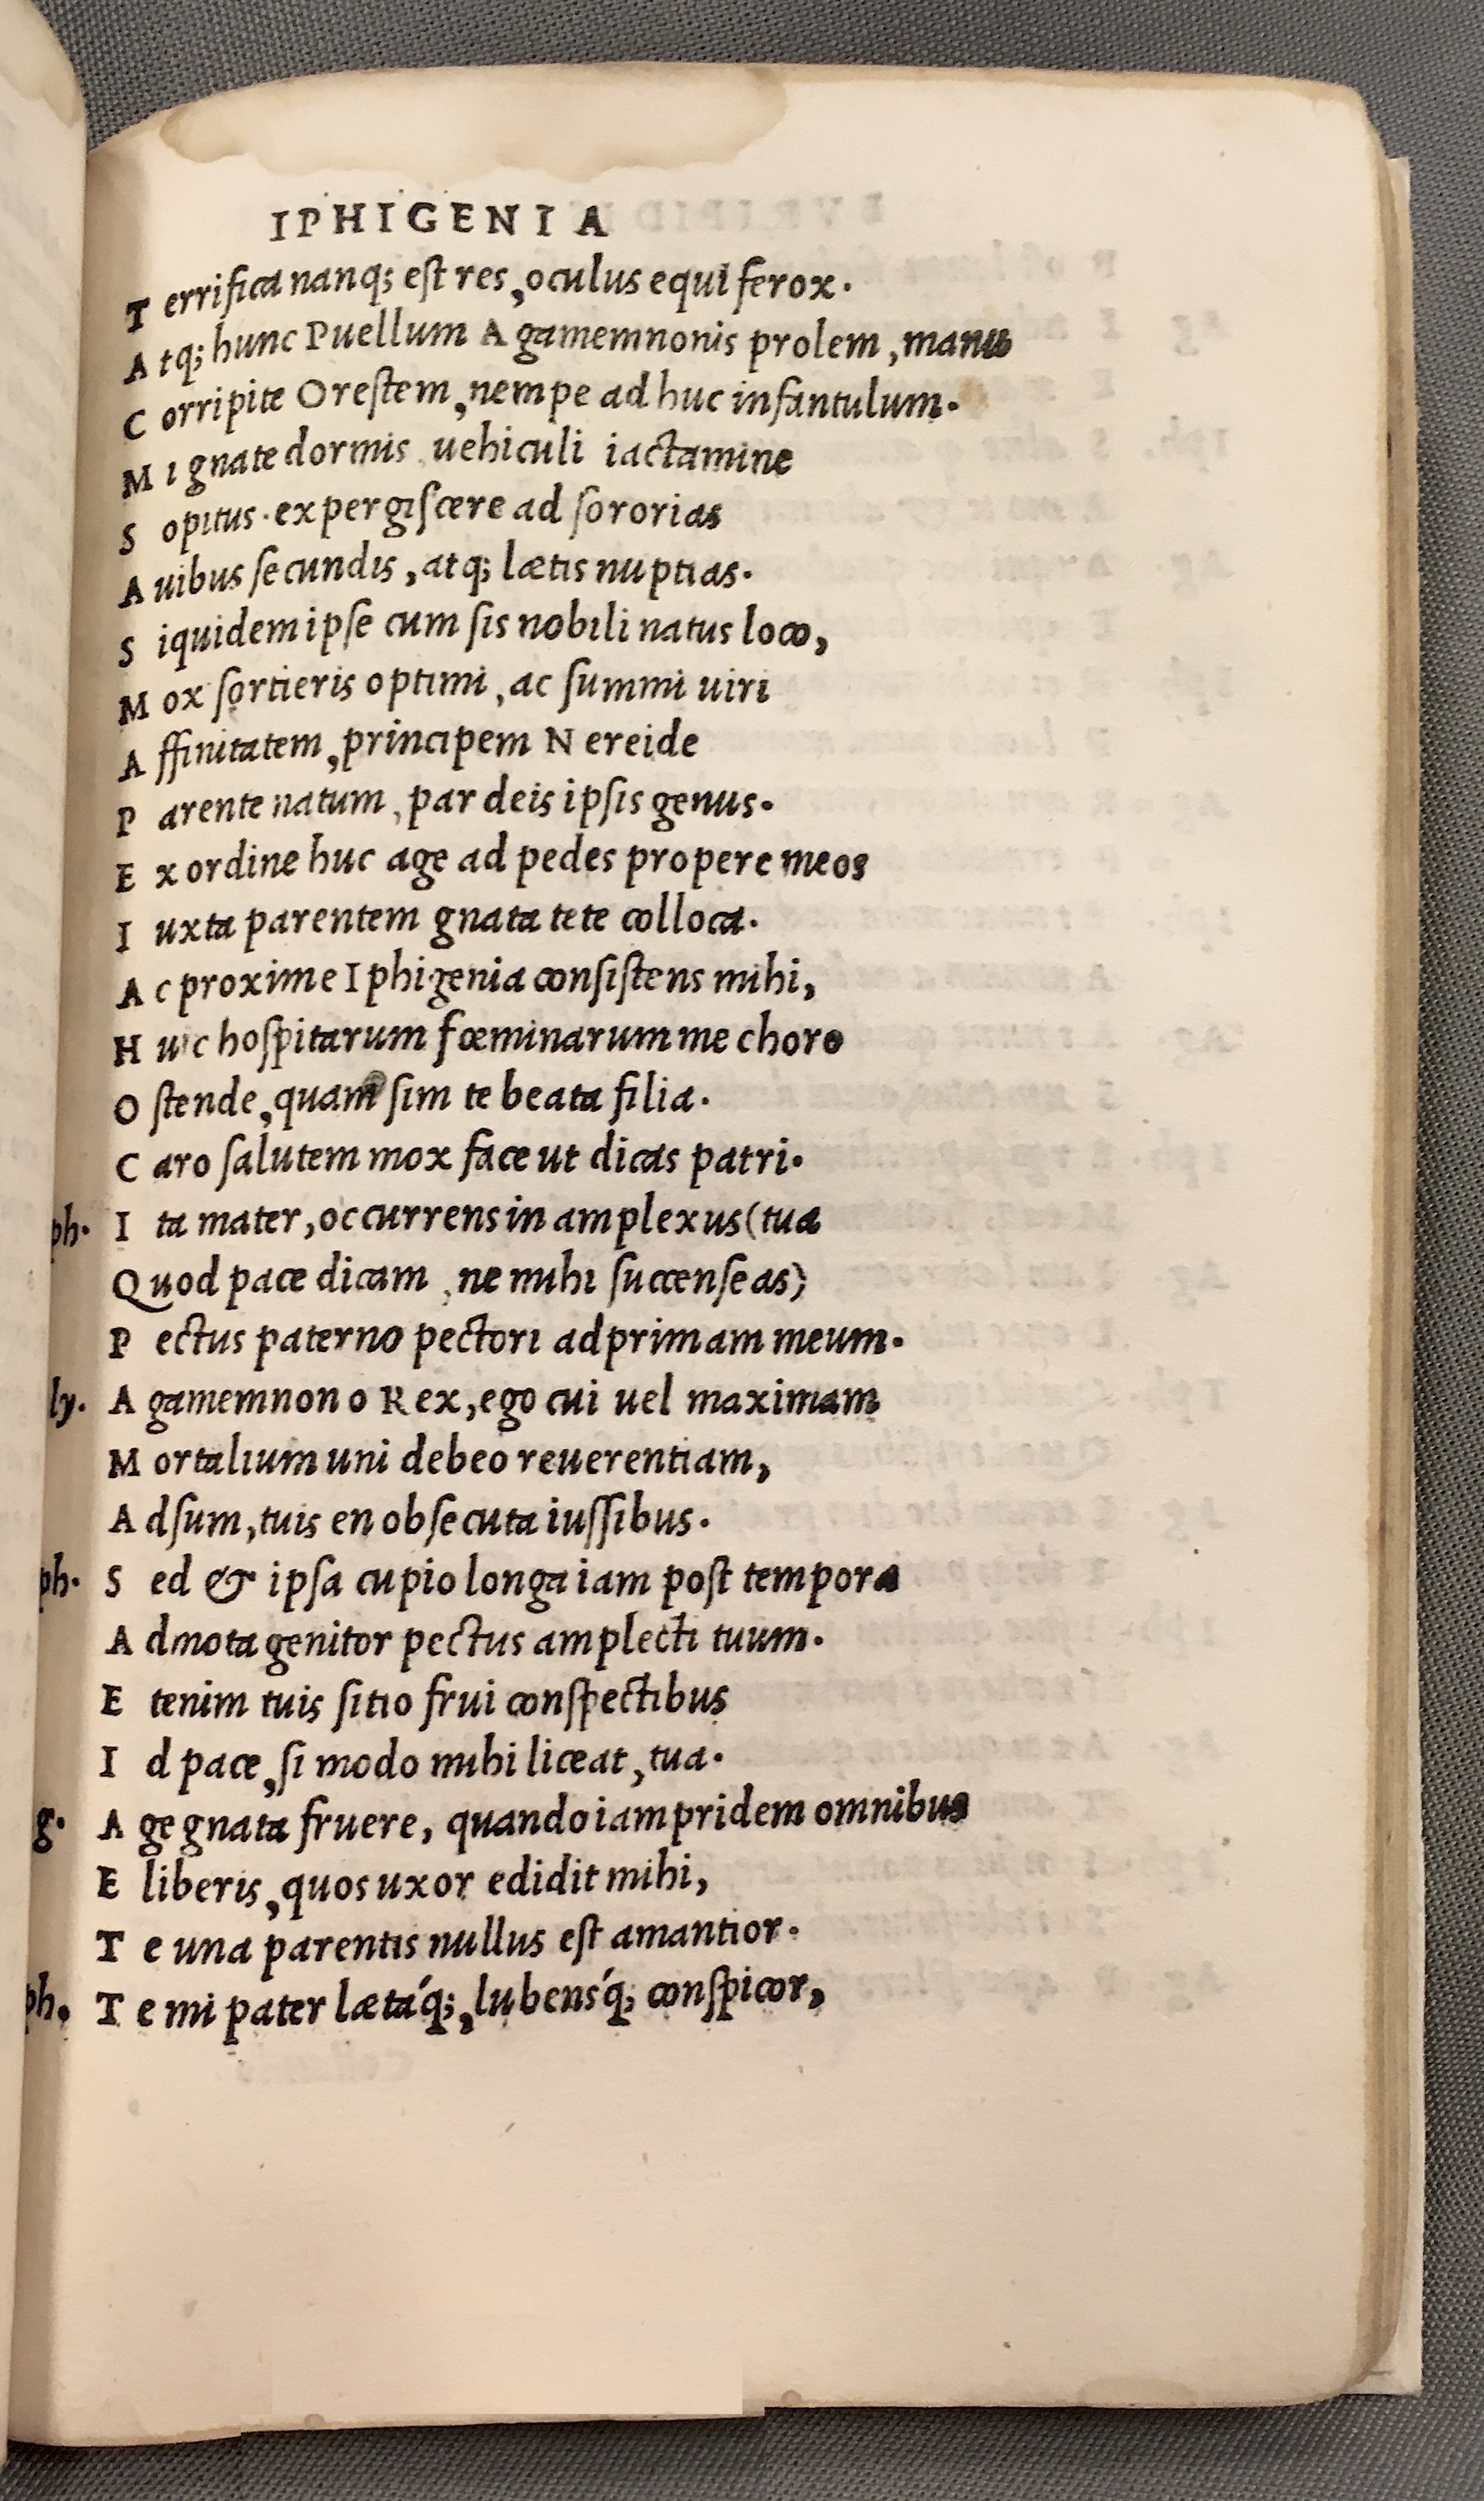 IPHIGENIA
Terrifica nanq; est res, oculus equi ferox.
Atq; hunc Puellum Agamemnonis prolem, manu
Corripite Orestem, nempe adhuc infantulum.
Mi gnate dormis, uehiculi iactamine
Sopitus. expergiscere ad sororias
Auibus secundis, atq; lætis nuptias.
Siquidem ipse cum sis nobili natus loco,
Mox sortieris optimi, ac summi uiri
Affinitatem, principem Nereide
Parente natum, par deis ipsis genus.
Ex ordine huc age ad pedes propere meos
Iuxta parentem gnata tete colloca.
Ac proxime Iphigenia consistens mihi,
Huic hospitarum fœminarum me choro
Ostende, quam sim te beata filia.
Caro salutem mox face ut dicas patri.
ph. Ita mater, occurrens in amplexus (tua
Quod pace dicam, ne mihi succenseas)
Pectus paterno pectori adprimam meum.
ly. Agamemnon o Rex, ego cui uel maximam
Mortalium uni debeo reuerentiam,
Adsum, tuis en obsecuta iussibus.
ph. Sed & ipsa cupio longa iam post tempora
Admota genitor pectus amplecti tuum.
Etenim tuis sitio frui conspectibus
Id pace, si modo mihi liceat, tua.
g. Age gnata fruere, quando iampridem omnibus
E liberis, quos uxor edidit mihi,
Te una parentis nullus est amantior.
ph. Te mi pater lætáq;, lubensq́; conspicor,